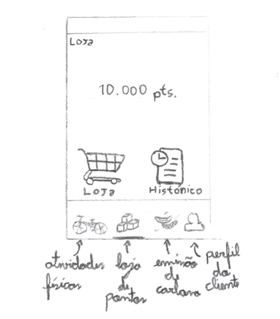 Loja
10.000 pts.
Loja Histórico
atividades físicas
loja de pontos
emissão de carbono
perfil do cliente